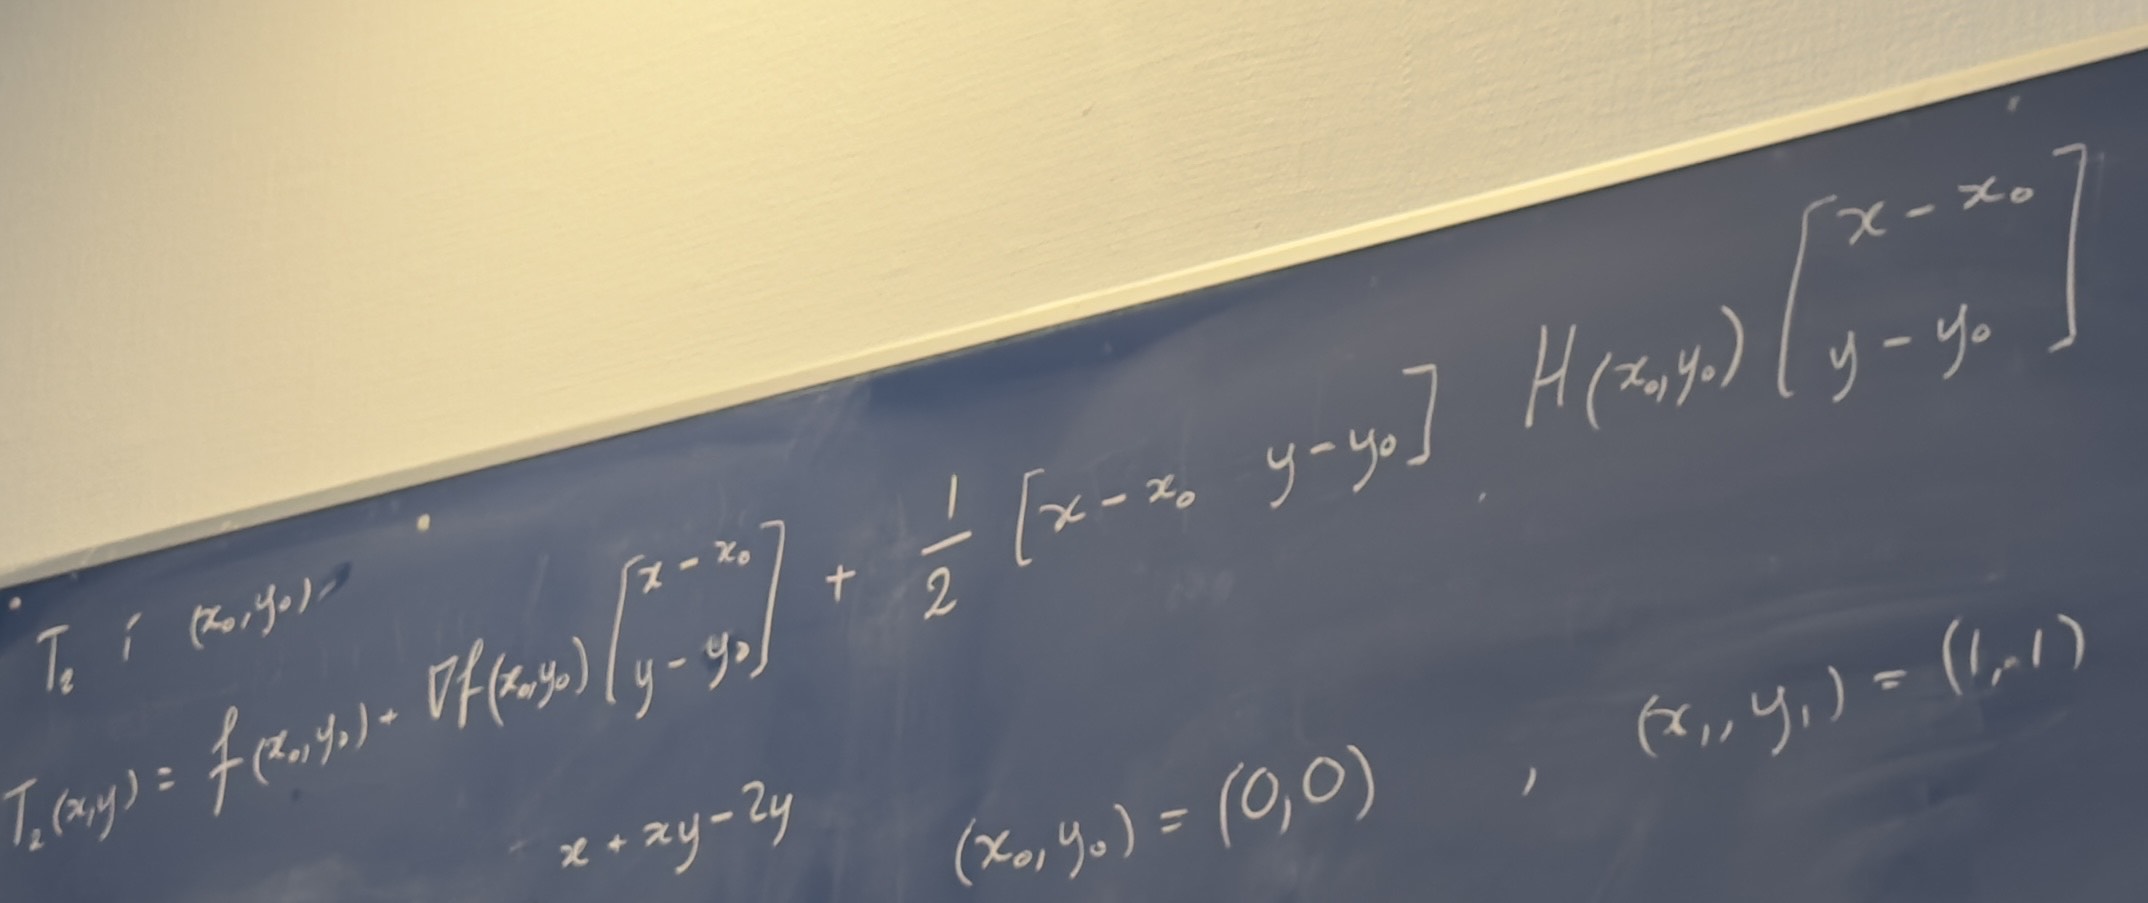 T₂ í (x₀,y₀)
T₂(x,y) = f(x₀,y₀) + ∇f(x₀,y₀) [x - x₀; y - y₀] + 1/2 [x - x₀ y - y₀] H(x₀,y₀) [x - x₀; y - y₀]
x + xy - 2y (x₀,y₀) = (0,0) , (x₁,y₁) = (1,-1)